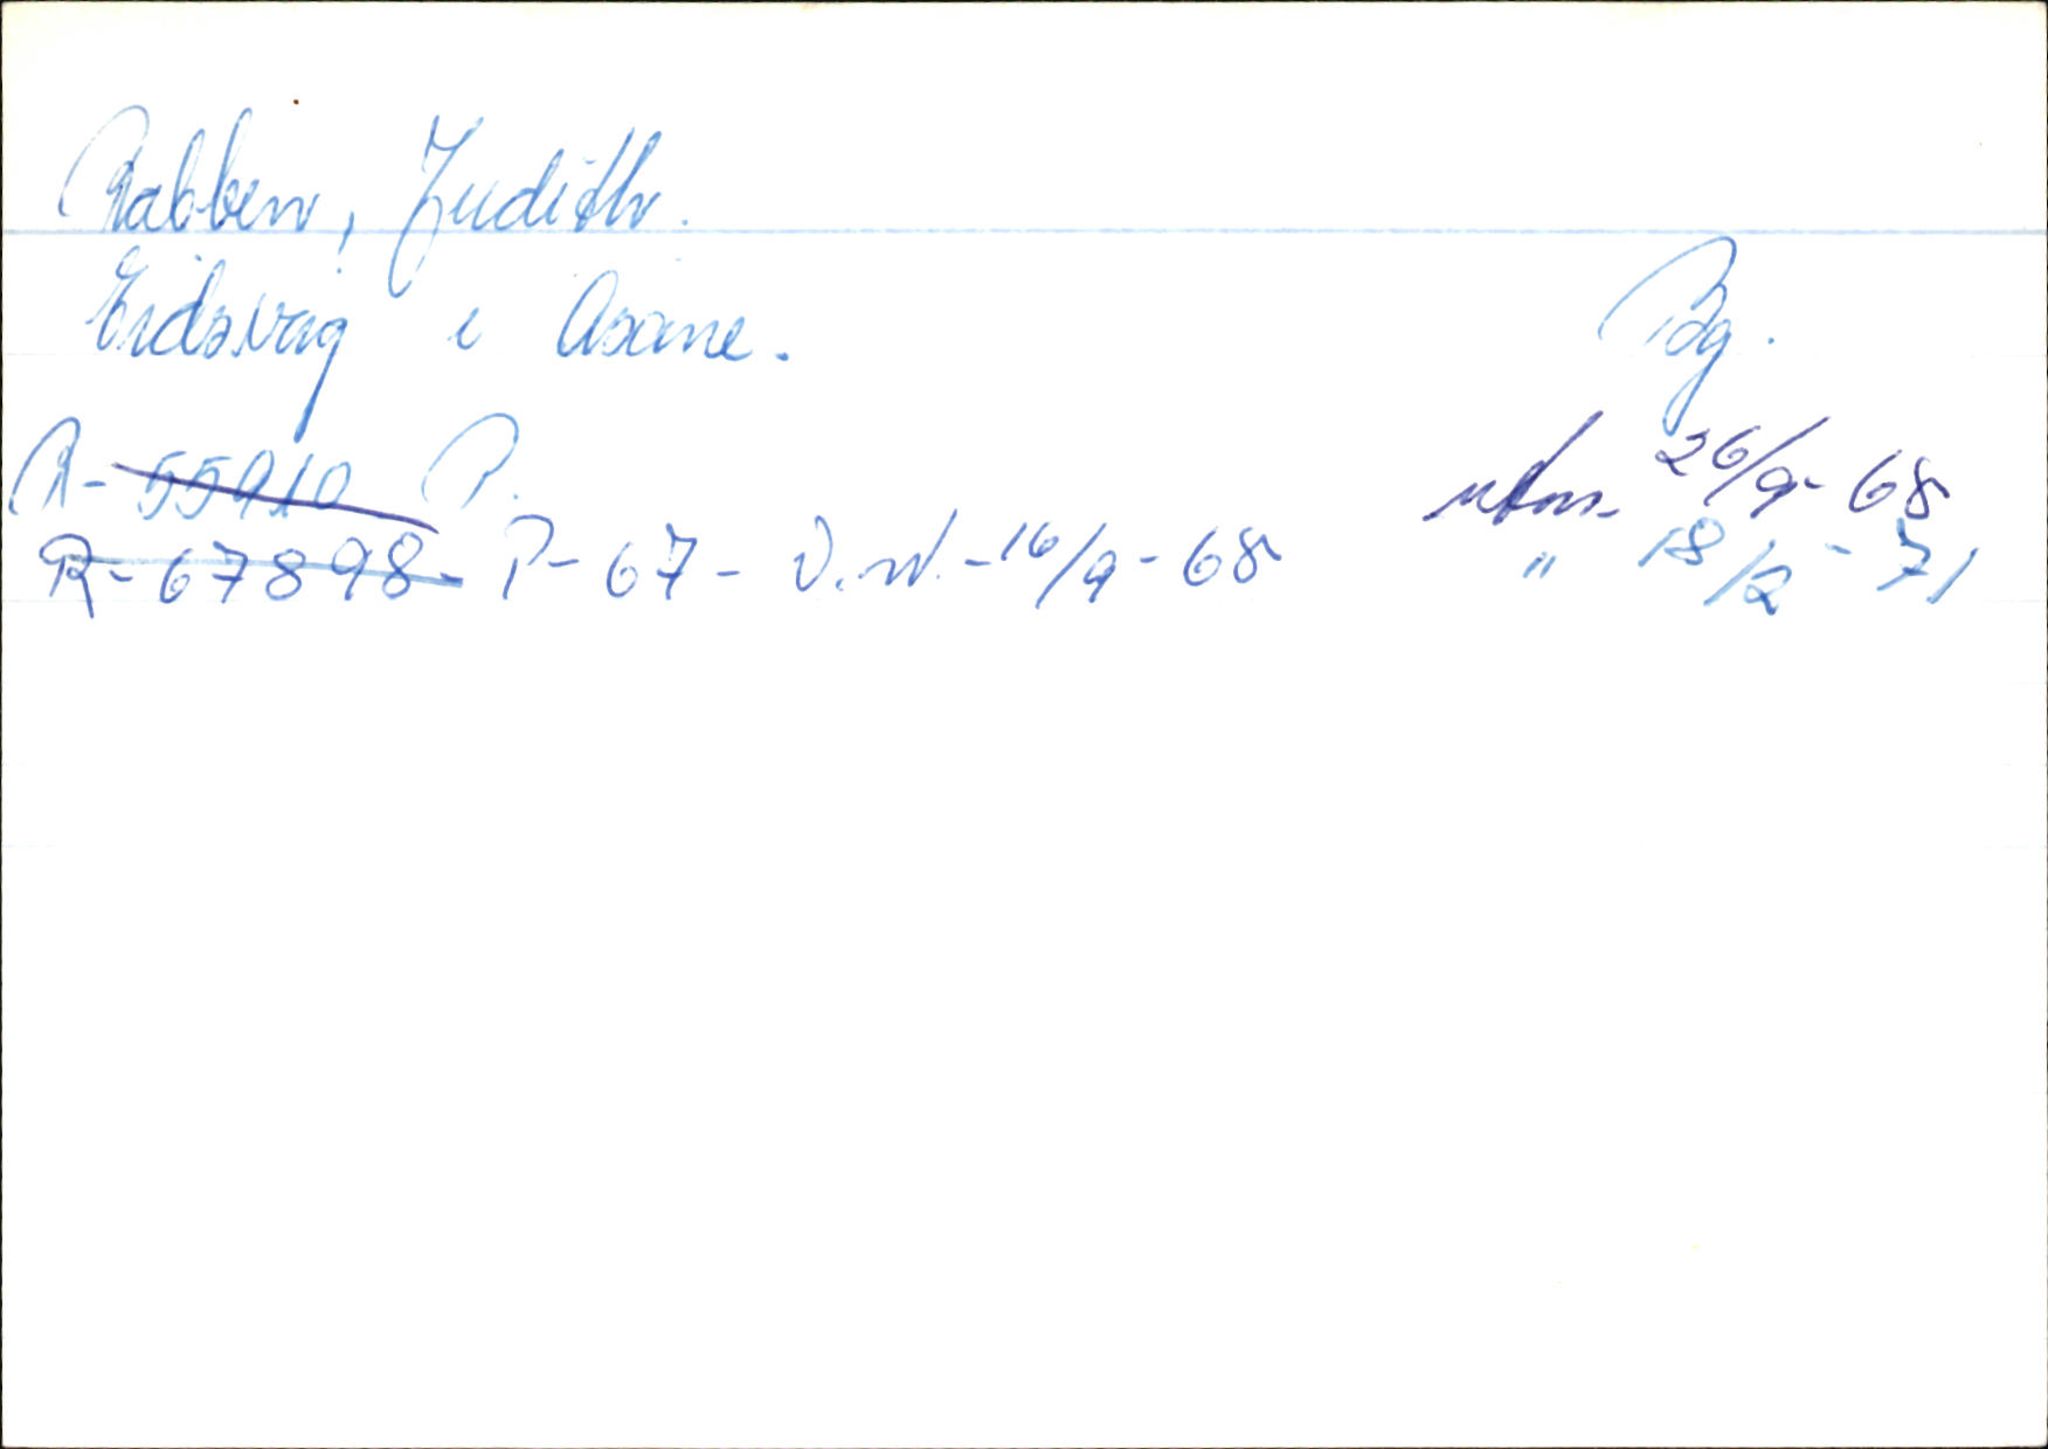 Rabben, Judith.
Eidsvåg i Åsane. Bg.
R-55910 P. utm. 26/9-68
R-67898- P-67- V.W.-16/9-68 " 18/2-71